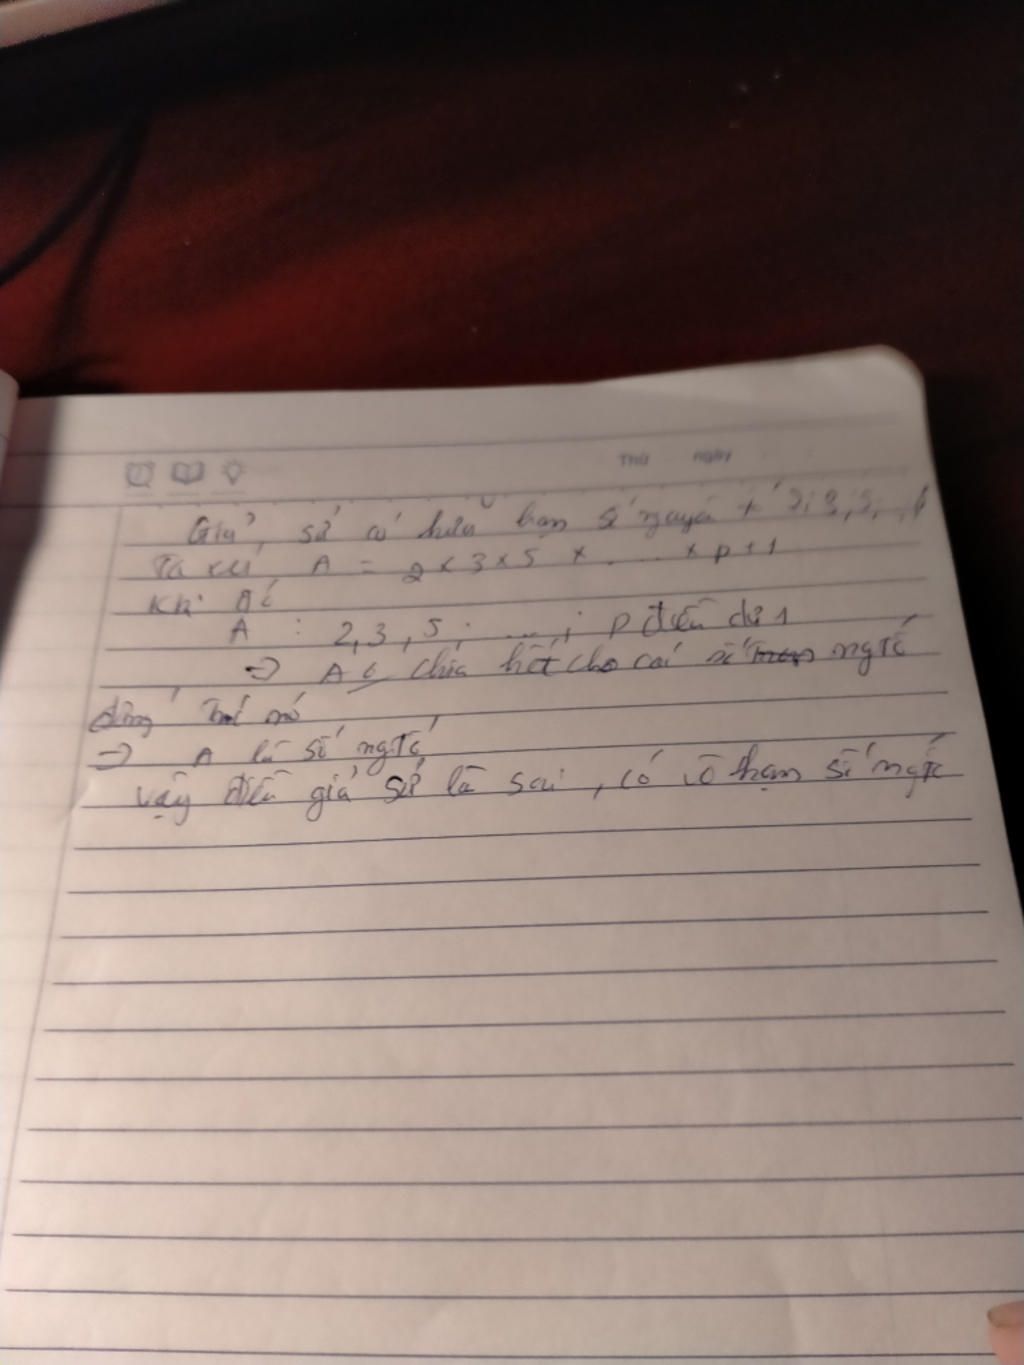 Thứ ngày
Giả sử có hữu hạn số nguyên tố 2, 3, 5, ..., p
Ta xét A = 2 x 3 x 5 x ..... x p + 1
Khi đó
A : 2, 3, 5, ...., p đều dư 1
=> A chia hết cho các số ngtố
đứng trước nó
=> A là số ngtố
vậy điều giả sử là sai, có vô hạn số ngtố